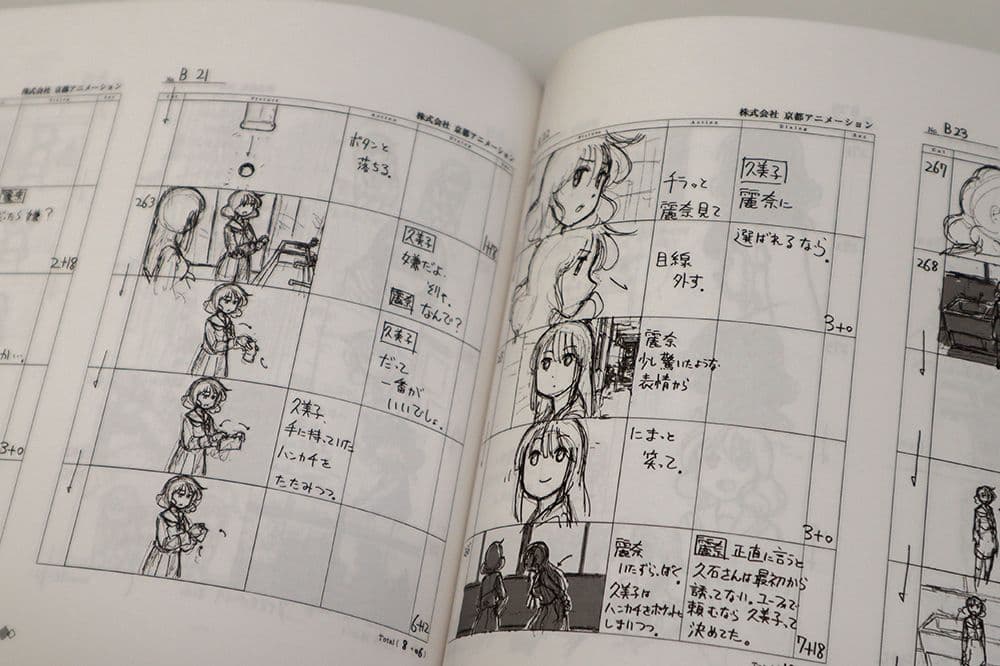 株式会社 京都アニメーション
麗奈
2+18
3+0
No. B 21
株式会社 京都アニメーション
Cut
Picture
Action
Dialog
Sec
ボタンと
落ちる。
1+18
263
久美子
嫌だよ、
そりゃ。
麗奈 なんで?
久美子
だって
一番が
いいでしょ。
久美子、
手に持っていた
ハンカチを
たたみつつ。
6+12
株式会社 京都アニメーション
Picture
Action
Dialog
Sec
チラッと
麗奈見て
久美子
麗奈に
目線
外す。
選ばれるなら。
3+0
麗奈
少し驚いたような
表情から
にまっと
笑って。
3+0
麗奈
いたずらっぽく。
久美子は
ハンカチをポケットに
しまいつつ。
麗奈 正直に言うと
久石さんは最初から
誘ってない。ユーフォで
頼むなら 久美子って
決めてた。
7+18
No. B 23
Cut
267
268